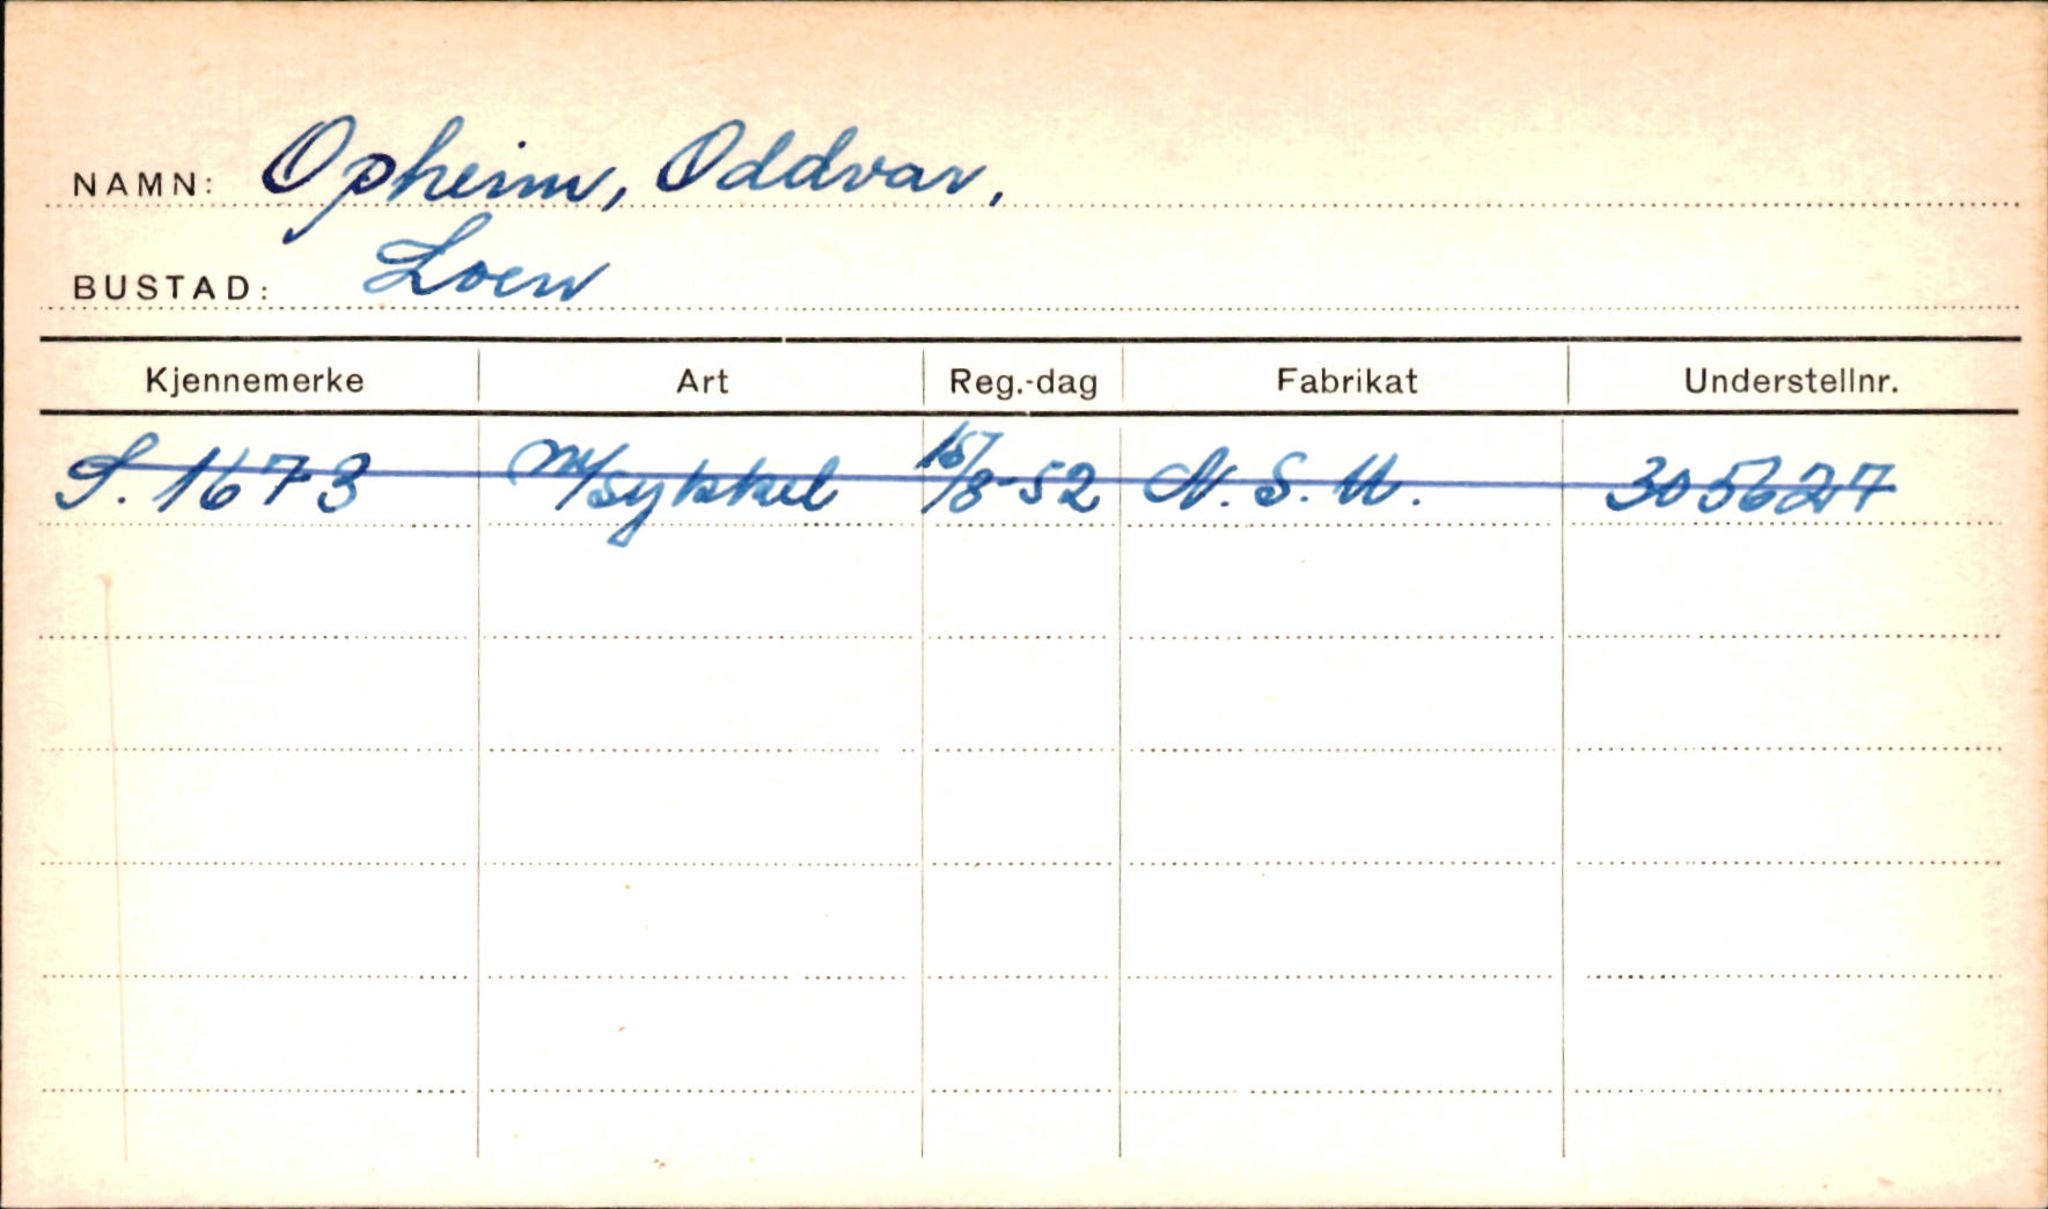 NAMN: Opheim, Oddvar,
BUSTAD: Loen
Kjennemerke Art Reg.-dag Fabrikat Understellnr.
S. 1673 m/sykkel 15/8-52 N.S.U. 305627